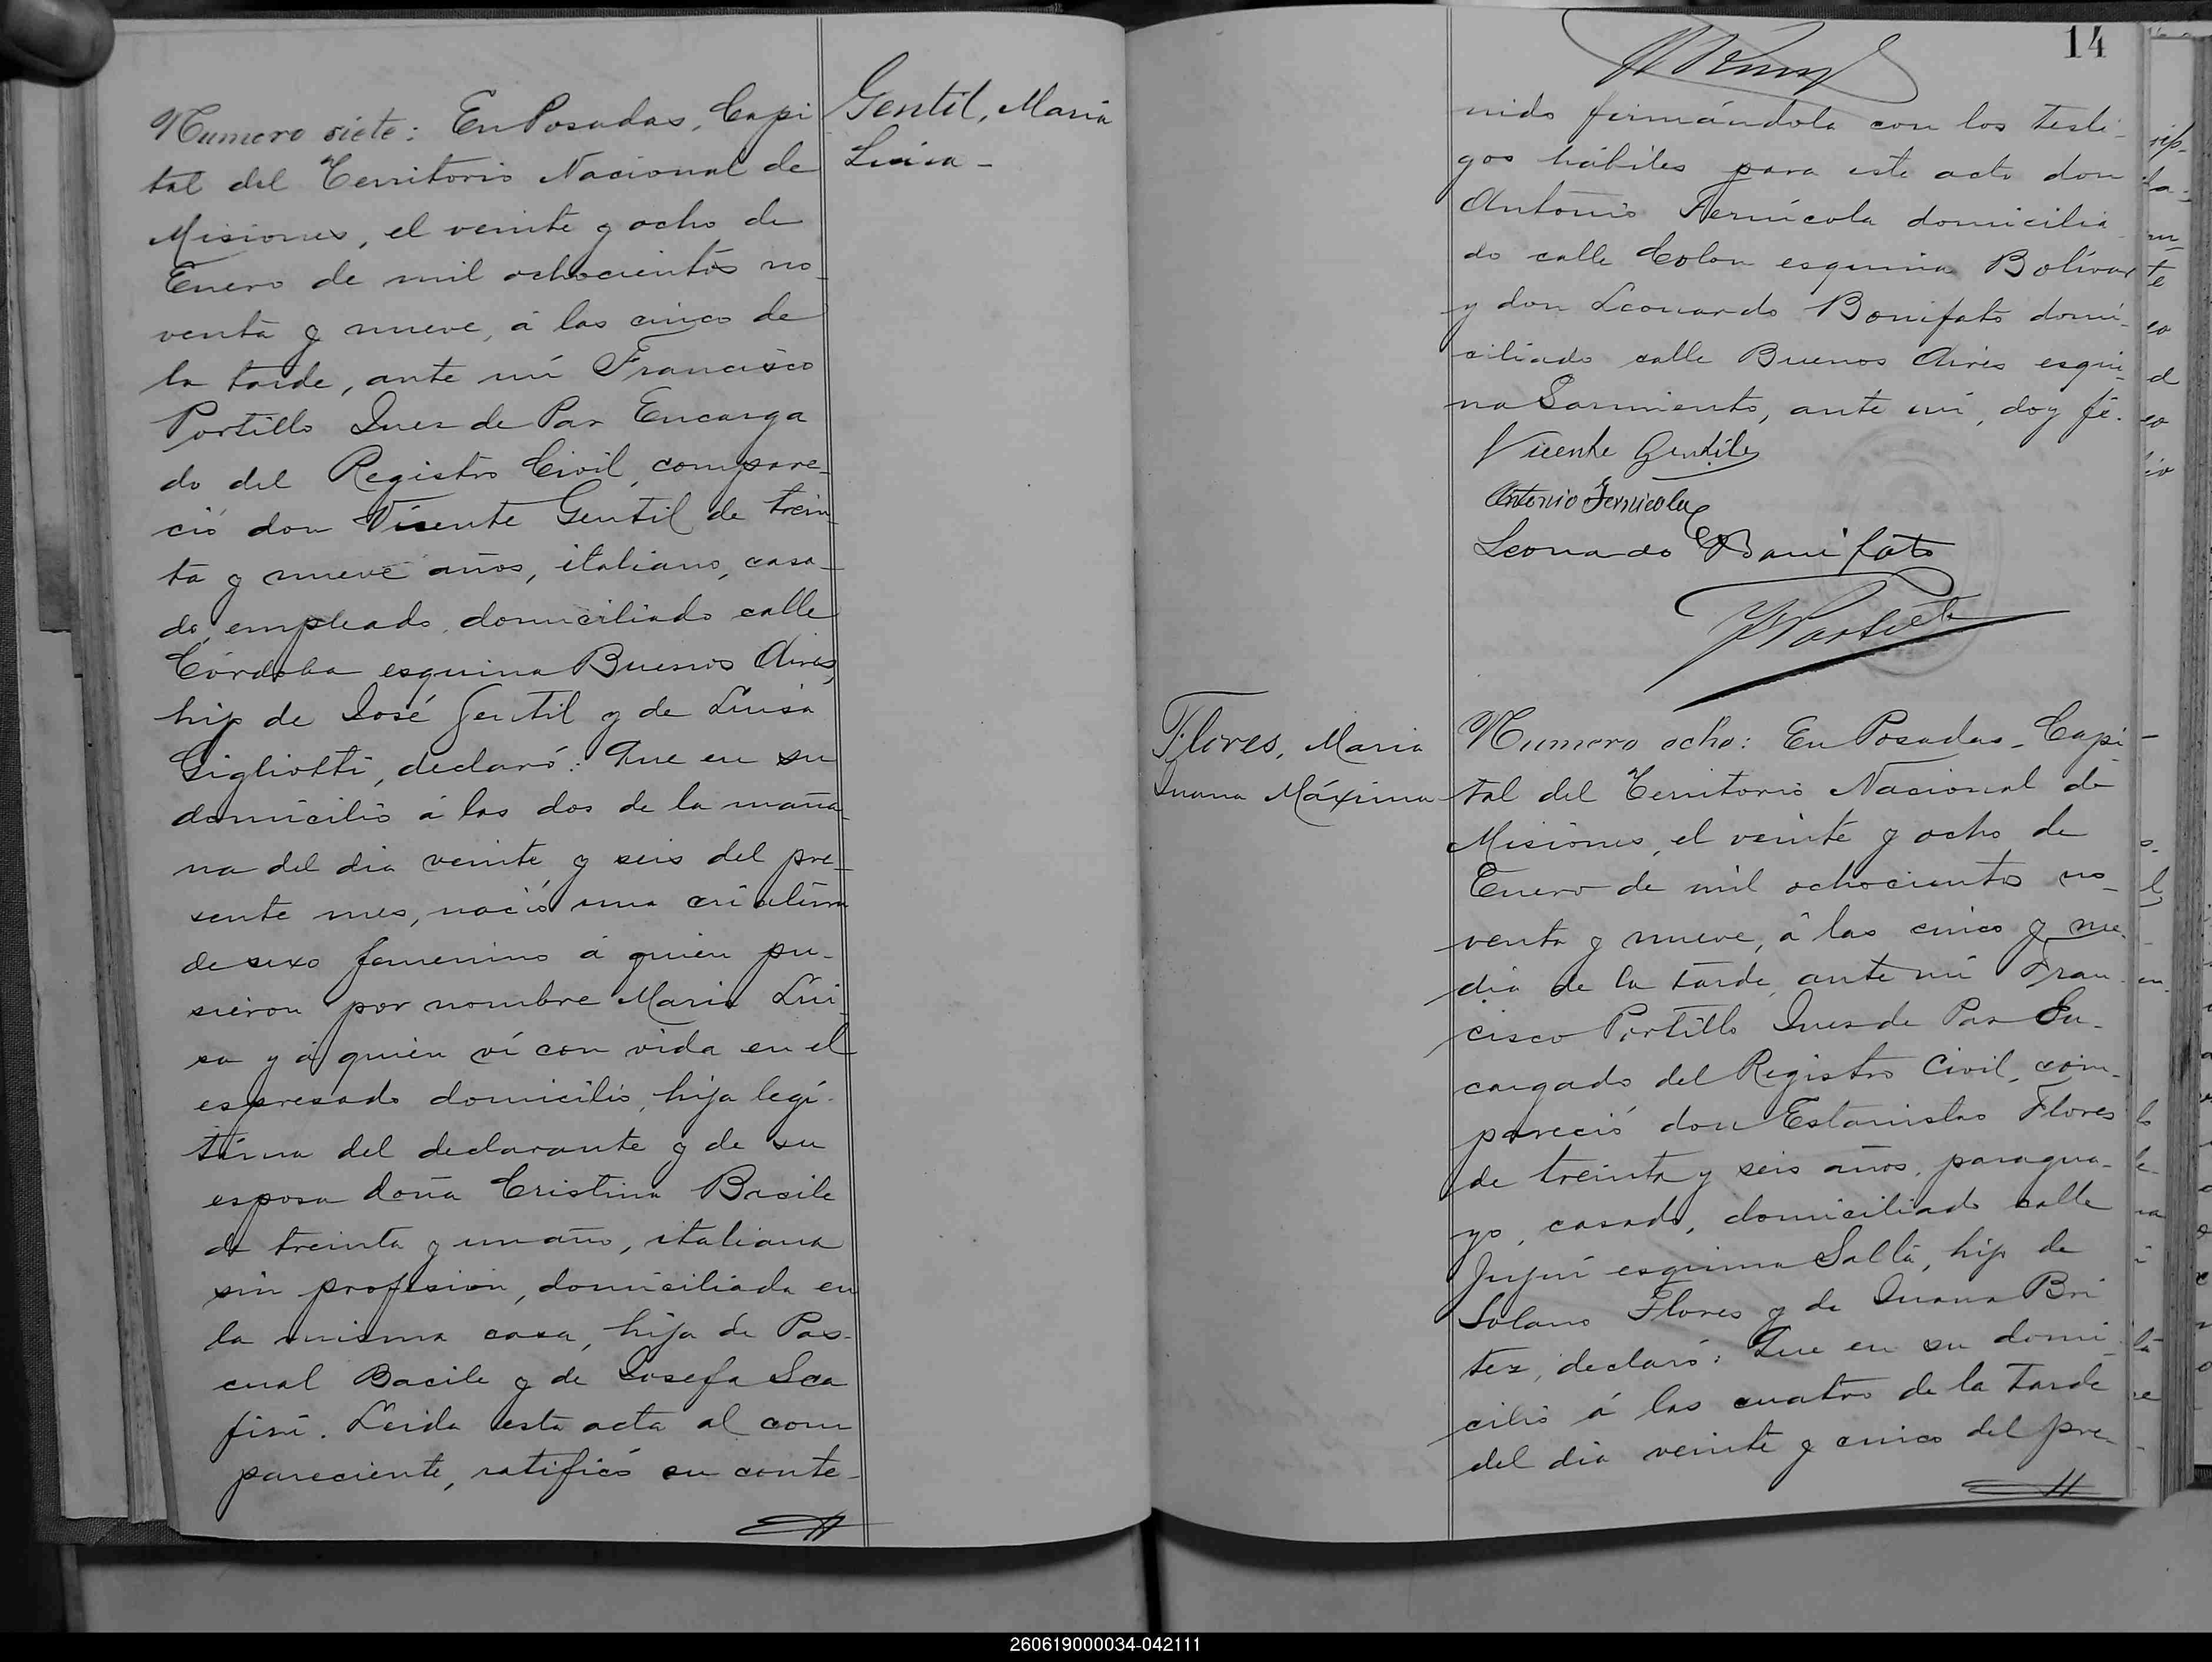 Numero siete: En Posadas, Capi
tal del Territorio Nacional de
Misiones, el veinte y ocho de
Enero de mil ochocientos no-
venta y nueve, á las cinco de
la tarde, ante mi Francisco
Portillo Juez de Paz Encarga
do del Registro Civil, compare-
ció don Vicente Gentil de trein-
ta y nueve años, italiano, casa-
do, empleado, domiciliado calle
Córdoba esquina Buenos Aires,
hijo de José Gentil y de Luisa
Gigliotti, declaró: Que en su
domicilio á las dos de la maña-
na del dia veinte y seis del pre-
sente mes, nació una criatura
de sexo femenino á quien pu-
sieron por nombre Maria Lui-
sa y á quien ví con vida en el
espresado domicilio, hija legí-
tima del declarante y de su
esposa doña Cristina Basile
de treinta y un año, italiana
sin profesion, domiciliada en
la misma casa, hija de Pas-
cual Bacile y de Josefa Sca
firi. Leida esta acta al com
pareciente, ratificó su conte-
Gentil, Maria
Luisa -
14
nido firmándola con los testi-
gos hábiles para este acto don
Antonio Fernícola domicilia-
do calle Colon esquina Bolívar
y don Leonardo Bonifato domi-
ciliado calle Buenos Aires esqui-
na Sarmiento, ante mi, doy fé.
Vicente Gentile
Antonio Fernicola
Leonardo Bonifato
FPortillo
Flores, Maria
Juana Máxima
Numero ocho: En Posadas, Capi-
tal del Territorio Nacional de
Misiones, el veinte y ocho de
Enero de mil ochocientos no-
venta y nueve, á las cinco y me-
dia de la tarde, ante mi Fran-
cisco Portillo Juez de Paz En-
cargado del Registro Civil, com-
pareció don Estanislao Flores
de treinta y seis años, paragua-
yo, casado, domiciliado calle
Jujui esquina Salta, hijo de
Solano Flores y de Juana Bri
tez, declaró: Que en su domi-
cilio á las cuatro de la tarde
del dia veinte y cinco del pre-
260619000034-042111